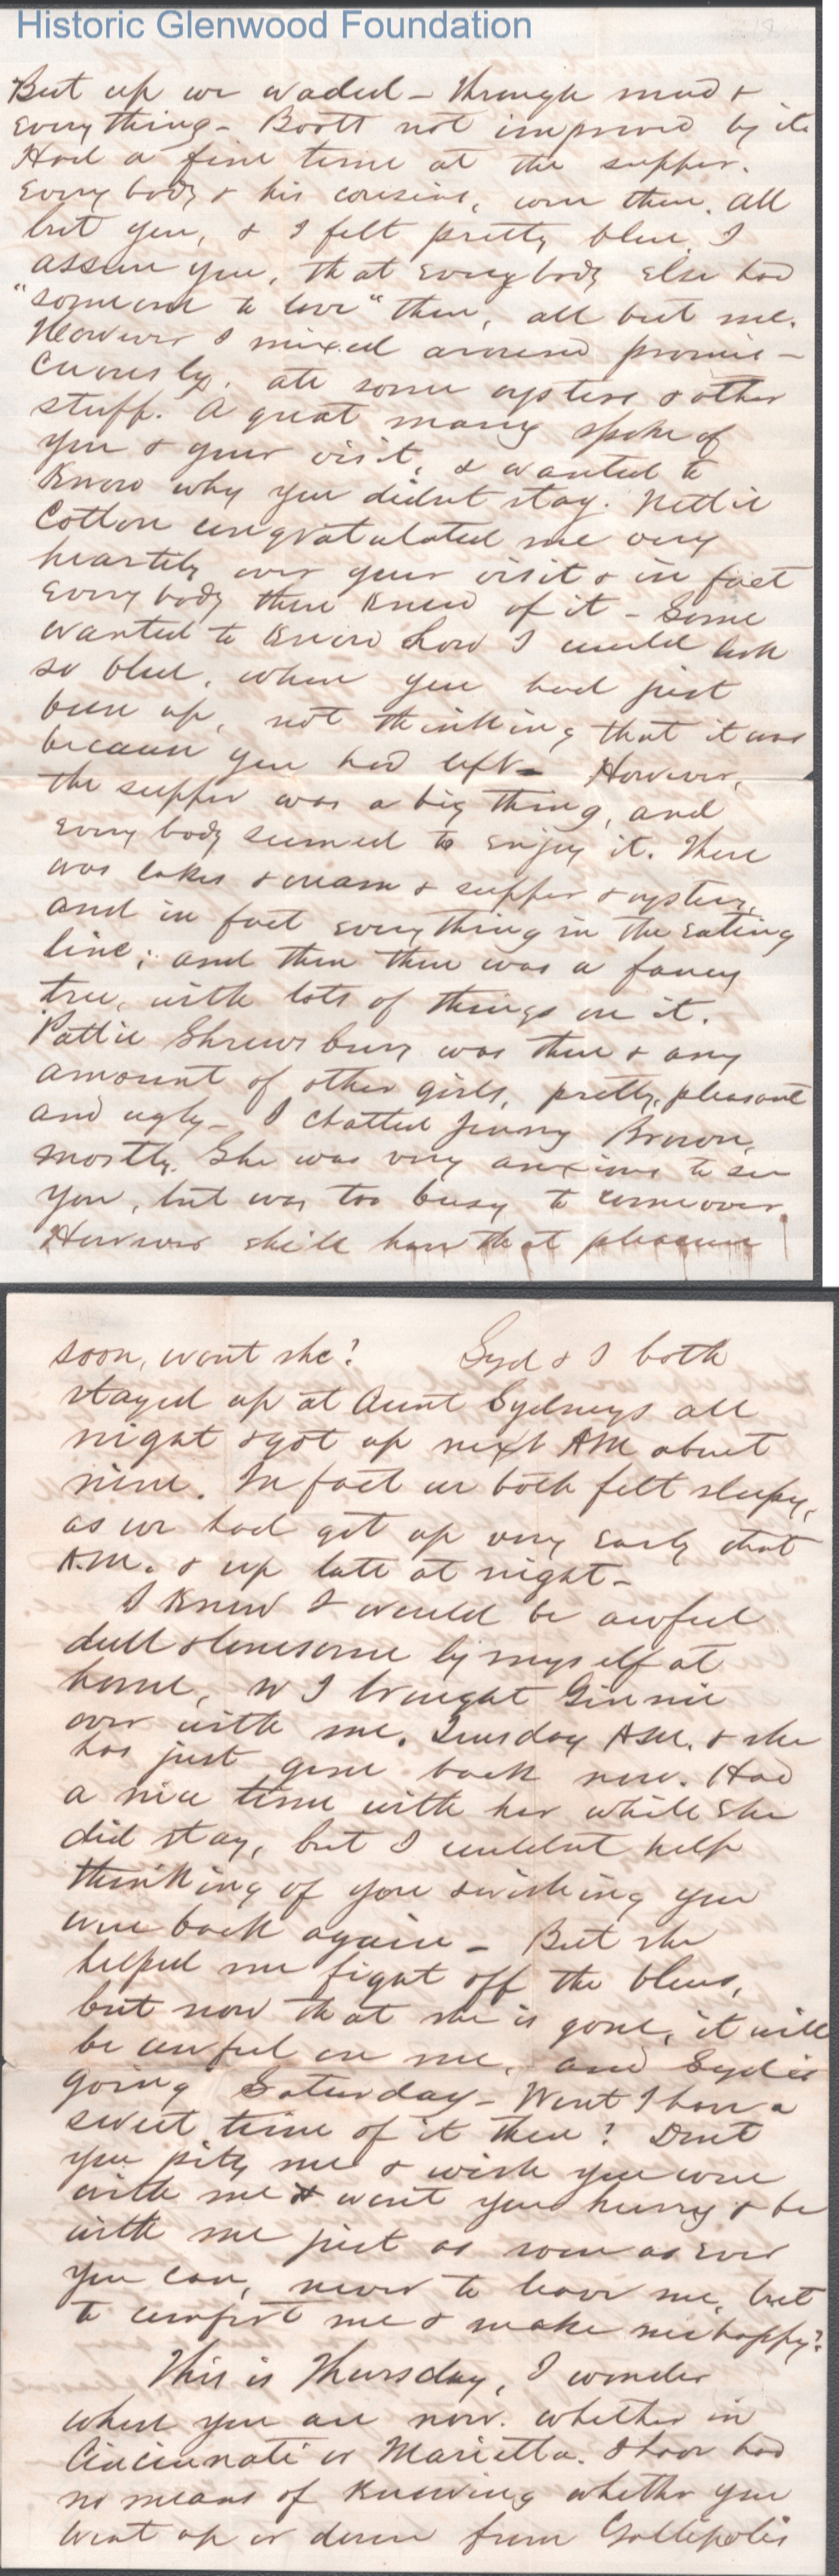 Historic Glenwood Foundation
But up we waded – through mud &
everything – Boots not improved by it.
Had a fine time at the supper.
Every body & his cousins, were there. All
but you, & I felt pretty blue, I
assure you, that everybody else had
"someone to love" there, all but me.
However I mixed around promis-
cuously, ate some oysters & other
stuff. A great many spoke of
you & your visit, & wanted to
know why you didnt stay. Nettie
Cotton congratulated me very
heartily over your visit & in fact
every body there knew of it – Some
wanted to know how I could look
so blue, when you had just
been up, not thinking that it was
because you had left – However,
the supper was a big thing, and
every body seemed to enjoy it. There
was cakes & cream & supper & oysters,
and in fact everything in the eating
line; and then there was a fancy
tree, with lots of things on it.
Pattie Shrewsbury was there & any
amount of other girls, pretty, pleasant
and ugly – I chatted Jenny Brown,
mostly. She was very anxious to see
you, but was too busy to come over.
However she'll have that pleasure
soon, wont she? Syd & I both
stayed up at Aunt Sydneys all
night & got up next AM about
nine. In fact we both felt sleepy,
as we had got up very early that
A.M. & up late at night –
I knew I would be awful
dull & lonesome by myself at
home, so I brought Ginnie
over with me. Tuesday AM. & she
has just gone back now. Had
a nice time with her while she
did stay, but I couldnt help
thinking of you & wishing you
were back again – But she
helped me fight off the blues,
but now that she is gone, it will
be awful on me, and Syd is
going Saturday – Wont I have a
sweet time of it then? Dont
you pity me & wish you were
with me & wont you hurry & be
with me just as soon as ever
you can, never to leave me, but
to comfort me & make me happy?
This is Thursday, I wonder
where you are now. whether in
Cincinnati or Marietta. I have had
no means of knowing whether you
went up or down from Gallipolis